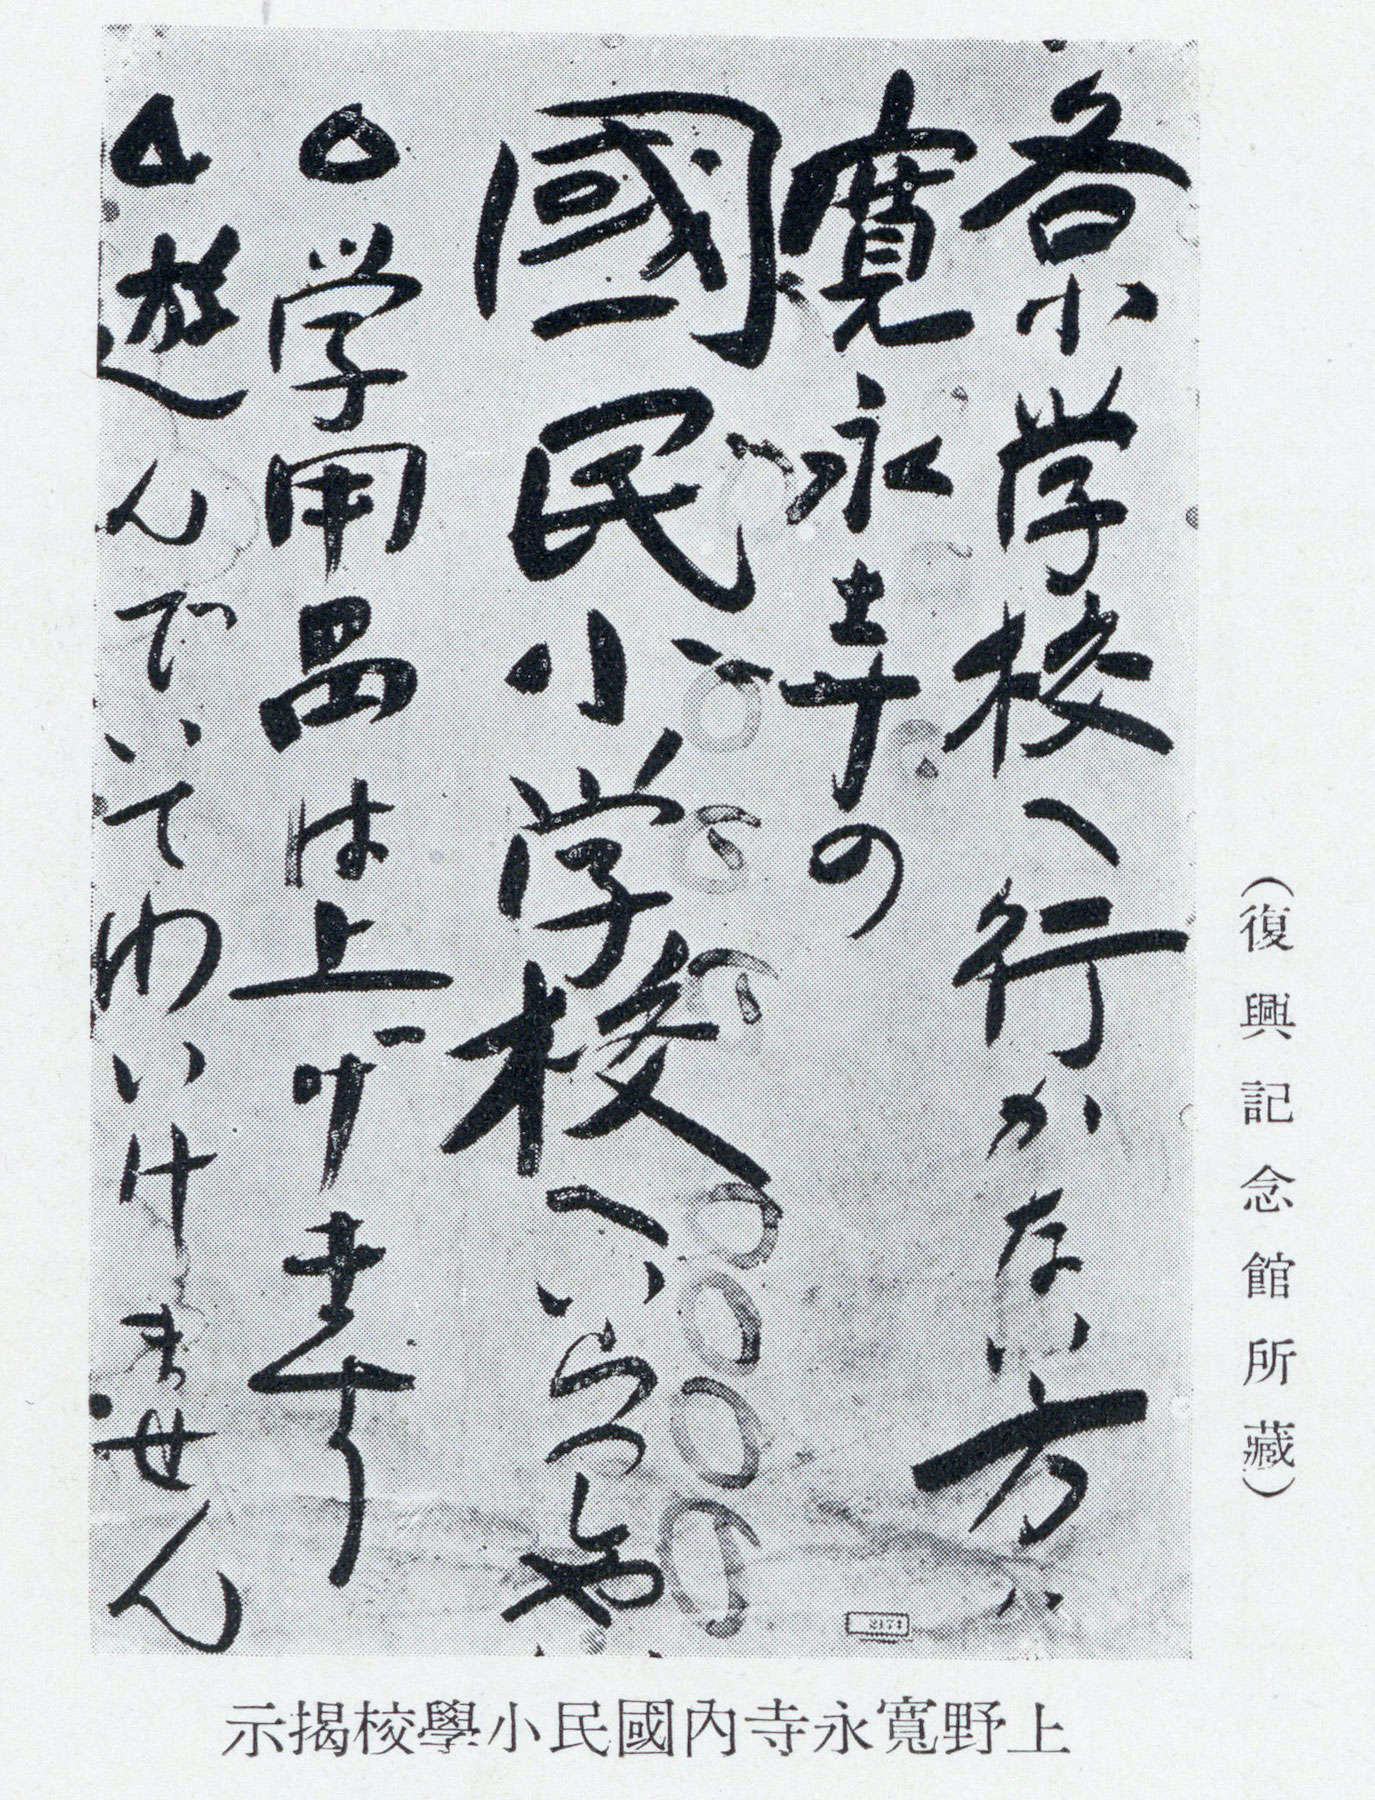 各小学校へ行かない方は
寛永寺の
國民小学校へいらつしや
△学用品は上げます
△遊んでいてわいけません
2171
(復興記念館所藏)
上野寬永寺內國民小學校揭示